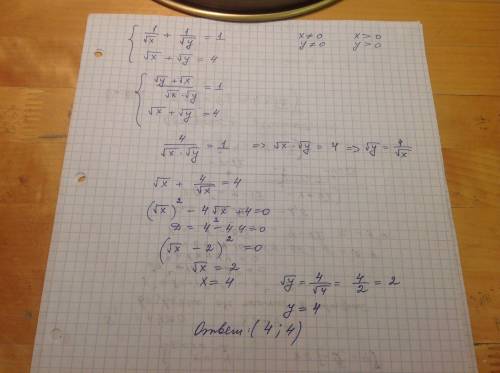 { 1/√x + 1/√y = 1     x ≠ 0     x > 0
√x + √y = 4     y ≠ 0     y > 0
{ (√y + √x)/(√x · √y) = 1
√x + √y = 4
4/(√x · √y) = 1 => √x · √y = 4 => √y = 4/√x
√x + 4/√x = 4
(√x)² - 4√x + 4 = 0
D = 4² - 4·4 = 0
(√x - 2)² = 0
√x = 2
x = 4     √y = 4/√4 = 4/2 = 2
y = 4
Ответ: (4; 4)